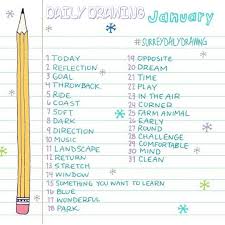 DAILY DRAWING January
#SURREYDAILYDRAWING
1 TODAY
2 REFLECTION
3 GOAL
4 THROWBACK
5 RIDE
6 COAST
7 SOFT
8 DARK
9 DIRECTION
10 MUSIC
11 LANDSCAPE
12 RETURN
13 STRETCH
14 WINDOW
15 SOMETHING YOU WANT TO LEARN
16 BLUE
17 WONDERFUL
18 PARK
19 OPPOSITE
20 DREAM
21 TIME
22 PLAY
23 IN THE AIR
24 CORNER
25 FARM ANIMAL
26 EARLY
27 ROUND
28 CHALLENGE
29 COMFORTABLE
30 MIND
31 CLEAN